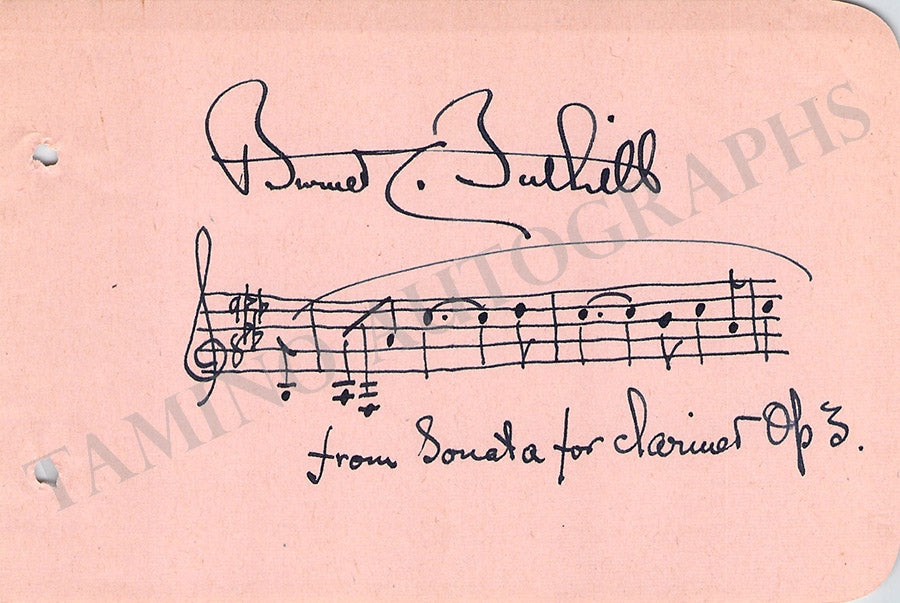 Burnet C. Tuthill
9
8
from Sonata for clarinet Op 3.
TAMINO AUTOGRAPHS